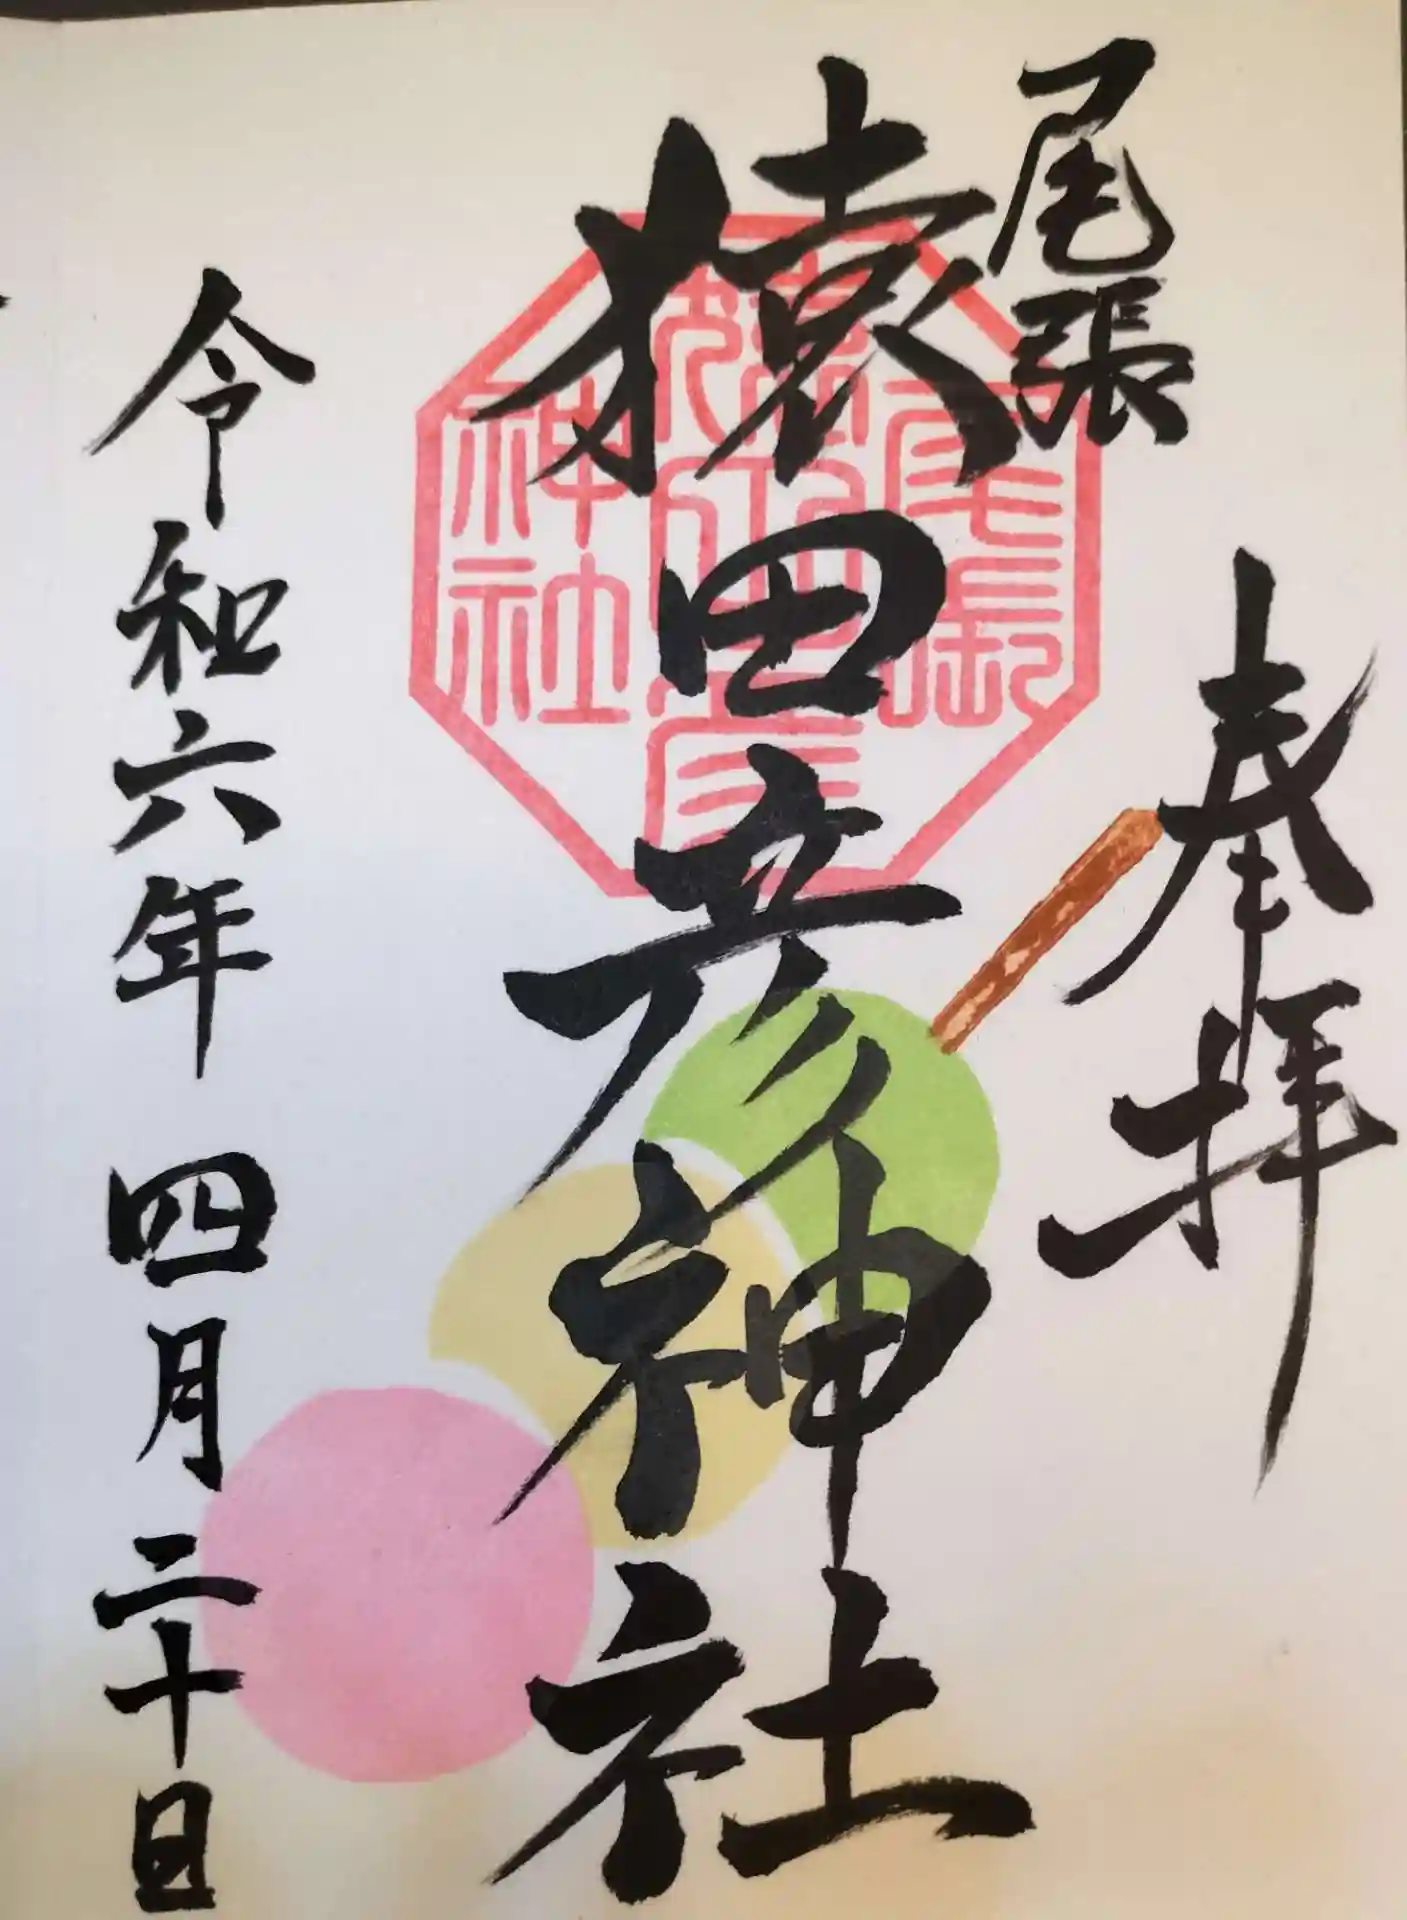 奉拝
尾張
猿田彦神社
尾張
猿田彦
神社
令和六年 四月二十日